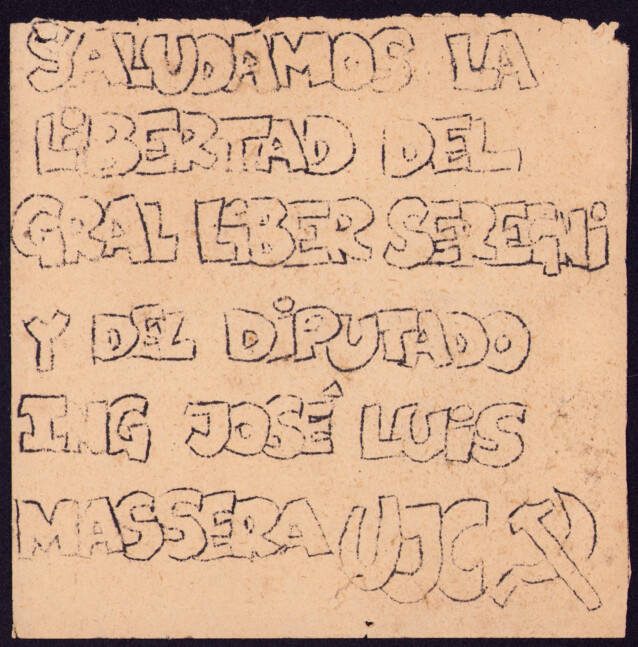 SALUDAMOS LA
LiBERTAD DEL
GRAL LiBER SEREGNi
Y DEL DiPUTADO
ING JOSÉ LUiS
MASSERA UJC